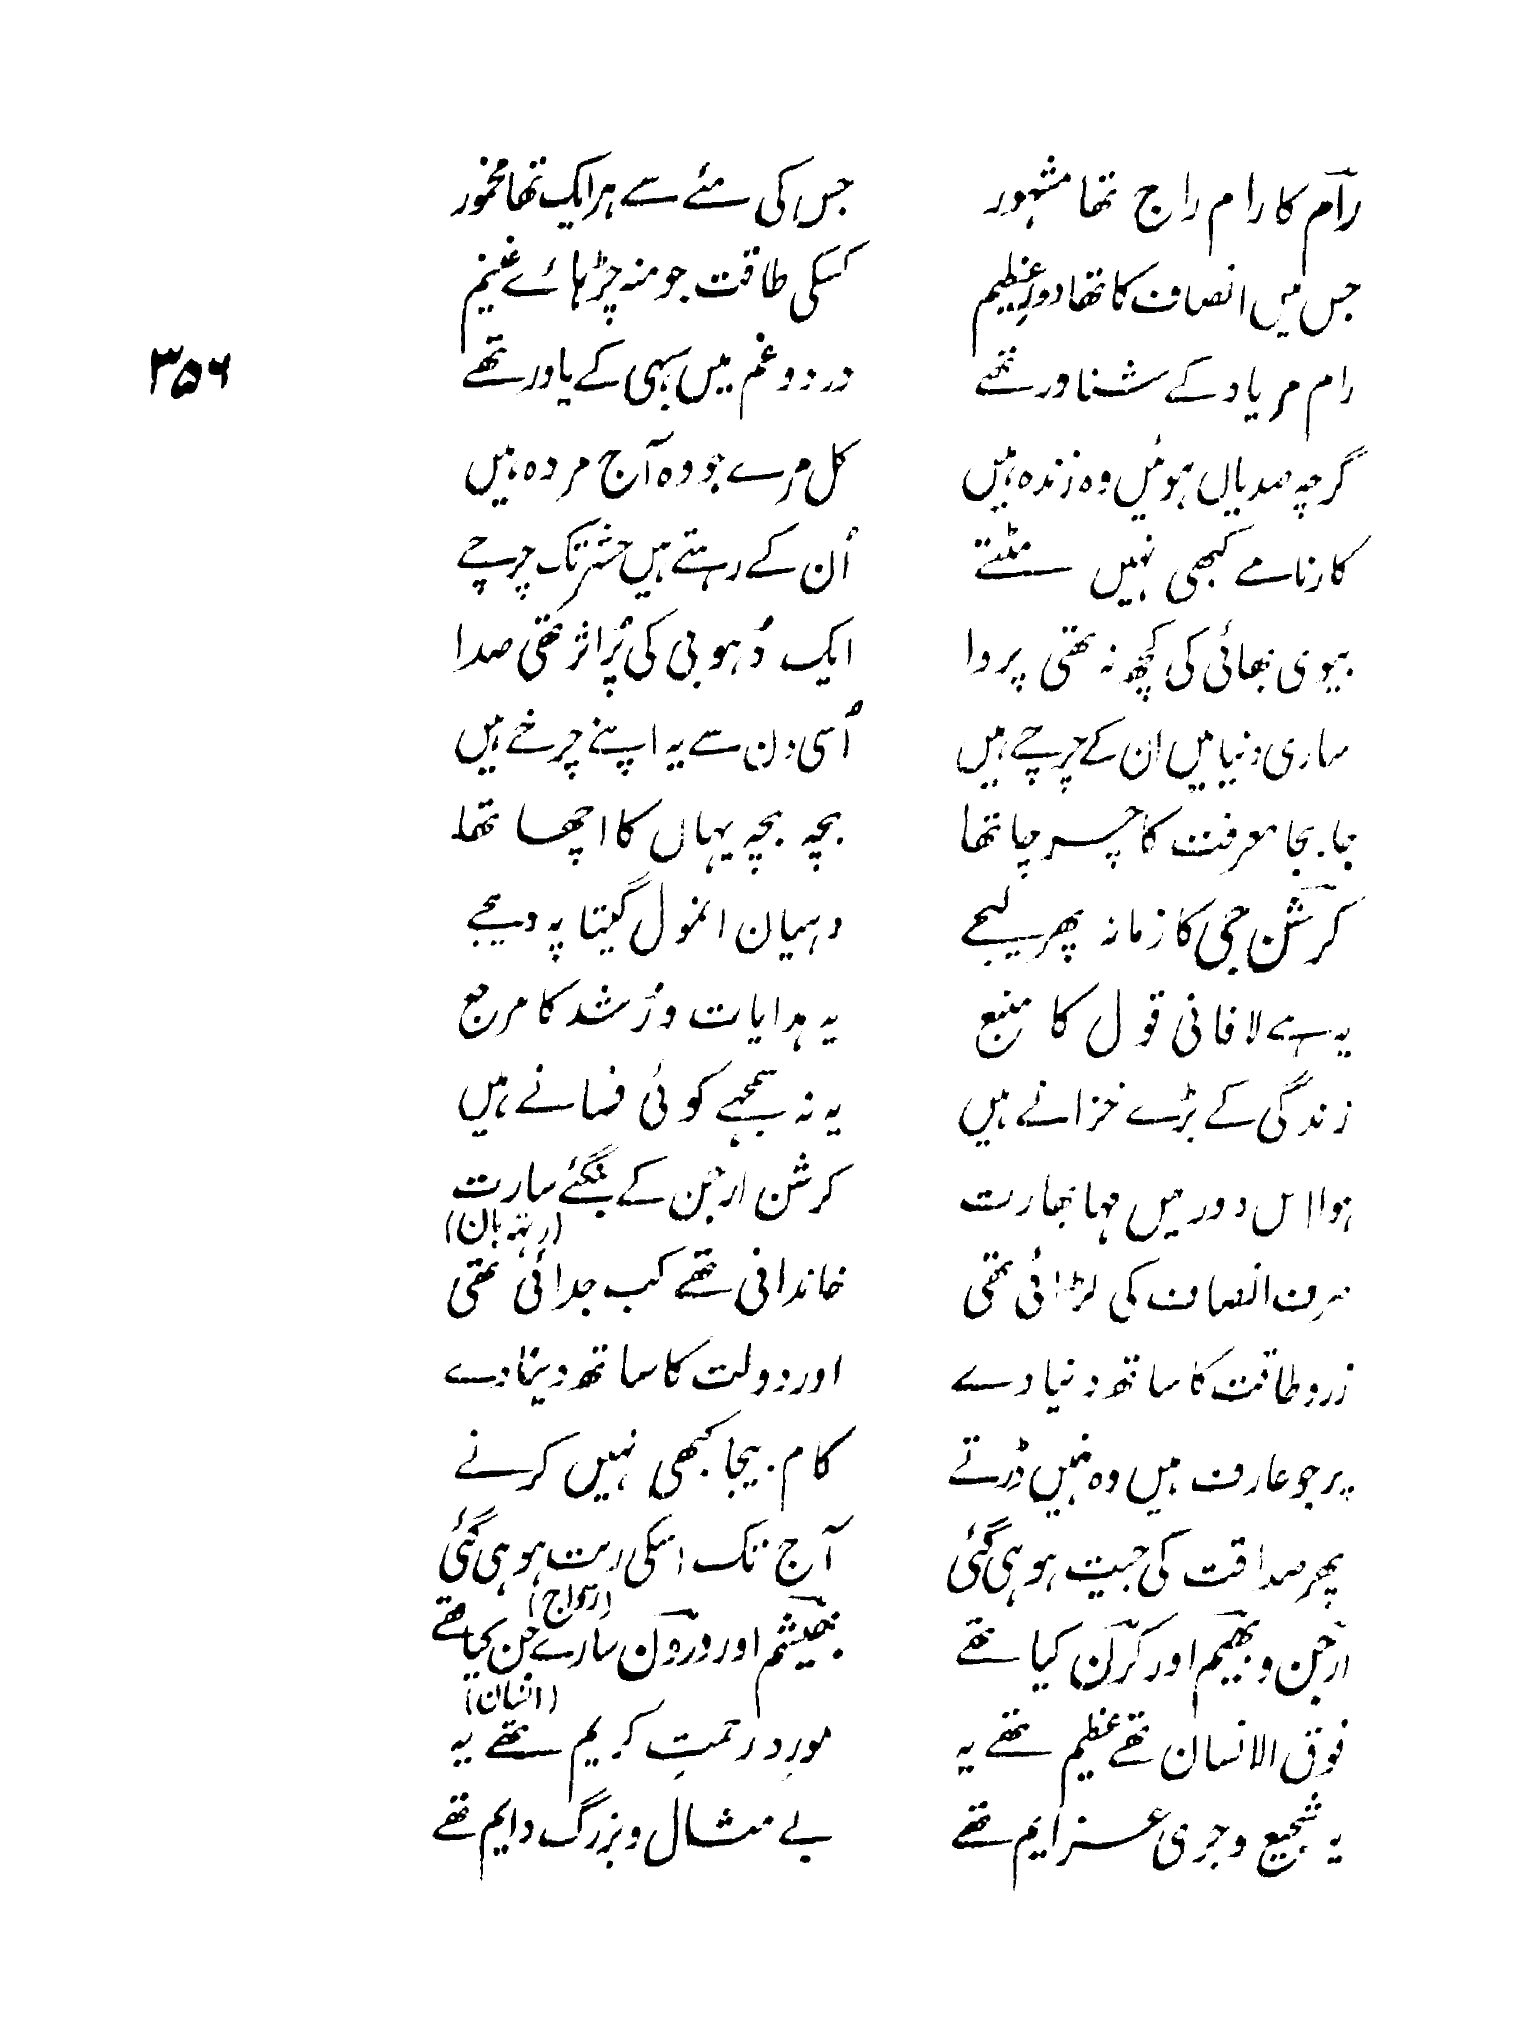 رام کا رام راج تھا مشہور جس کی مئے سے ہر ایک تھا مخمور
جس میں انصاف کا تھا دورِ عظیم کسکی طاقت جو منہ چڑہائے غنیم
رام مریاد کے شناور تھے درد و غم میں سبہی کے یاور تھے
۳۵۶
گرچہ صدیاں ہوئیں وہ زندہ ہیں کل مرے جو وہ آج مردہ ہیں
کارنامے کبھی نہیں مٹتے اُن کے رہتے ہیں حشر تک چرچے
بیوی بھائی کی کچھ نہ تھی پروا ایک دُہوبی کی پُر اثر تھی صدا
ساری دنیا میں ان کے چرچے ہیں اُسی دن سے یہ اپنے چرخے ہیں
جا بجا معرفت کا چرچا تھا بچہ بچہ یہاں کا اچھا تھا
کرشن جی کا زمانہ پھر لیجے دہیان انمول گیتا پہ دیجے
یہ ہے لافانی قول کا منبع یہ ہدایات و رُشد کا مرجع
زندگی کے بڑے خزانے ہیں یہ نہ سمجہے کوئی فسانے ہیں
ہوا اس دور میں مہابھارت کرشن ارجن کے بنگئے سارت
(رتھ بان)
صرف انصاف کی لڑائی تھی خاندانی تھے کب جدائی تھی
زر و طاقت کا ساتھ دنیا دے اور دولت کا ساتھ دیتا دے
پر جو عارف ہیں وہ نہیں ڈرتے کام بیجا کبھی نہیں کرتے
پھر صداقت کی جیت ہو ہی گئی آج تک اسکی ریت ہو ہی گئی
(رواج)
ارجن و بھیم اور کرن کیا تھے بھیشم اور درون سارے جن کیا تھے
(انسان)
فوق الانسان تھے عظیم تھے یہ موردِ رحمتِ کریم تھے یہ
یہ شجیع و جری عزایم تھے بے مثال و بزرگ دایم تھے